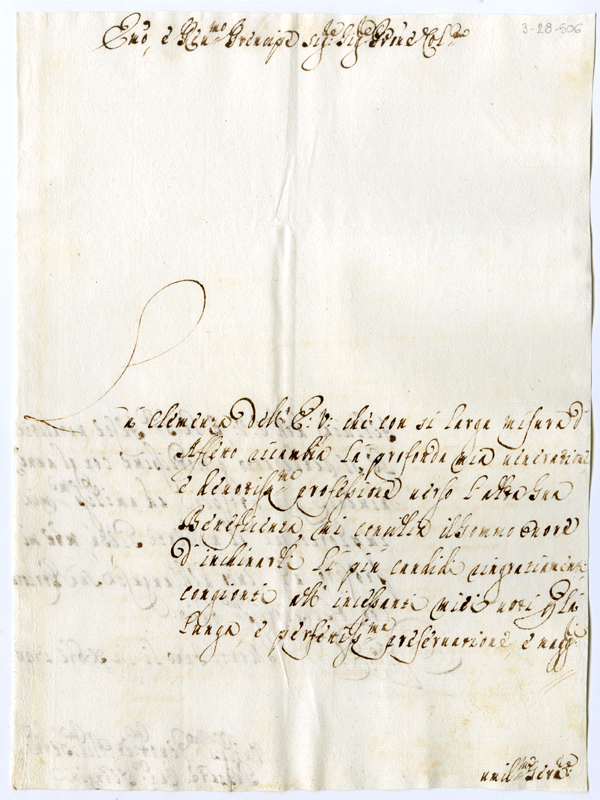 3-28-506
Emō, e Reu.mo Prencipe Sig.re Sig.re Prōne Col.mo
La Clemenza dell' E. V. che con si larga misura d'
Affetto ricambia la profonda mia veneratione
e deuotiss.ma professione verso l'alta sua
Beneficenza, mi concilia il sommo onore
d'inchinarle li più candidi ringratiamenti
congionti alli incessanti miei uoti per la
lunga e perfettiss.ma preseruatione, e
umil.mo deu.mo